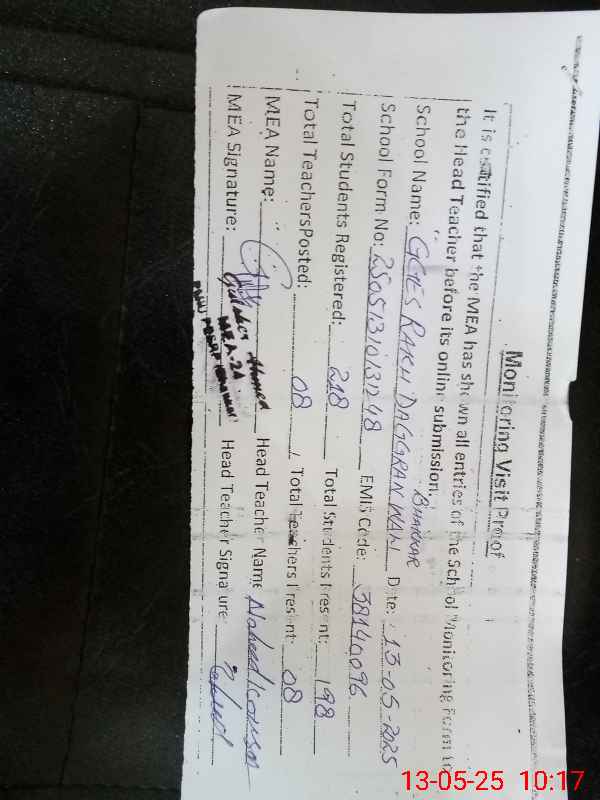 Monitoring Visit Proof
It is certified that the MEA has shown all entries of the School Monitoring Form to
the Head Teacher before its online submission.
BHAKKAR
School Name: GGES RAKH DAGGRAN WALI Date: 13-05-2025
School Form No: 25051310131248 EMIS Code: 38140096
Total Students Registered: 218 Total Students Present: 198
Total TeachersPosted: 08 Total Teachers Present: 08
MEA Name: Head Teacher Name Naheed Kousar
MEA Signature: Head Teacher Signature
Ahmed
MEA-21
13-05-25 10:17